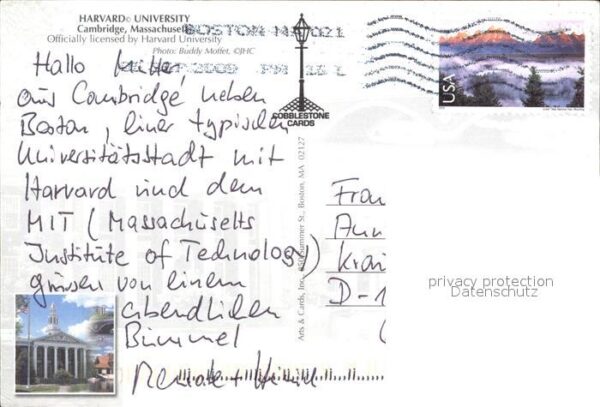 HARVARD© UNIVERSITY
Cambridge, Massachusetts
Officially licensed by Harvard University
Photo: Buddy Moffet, ©JHC
BOSTON MA 021
2009 PM
USA
COBBLESTONE
CARDS
Hallo
aus Cambridge neben
Boston, einer typischen
Universitätsstadt mit
Harvard und dem
MIT (Massachusetts
Institute of Technology)
grüssen von einem
abendlichen
Bummel
Renate +
Arts & Cards, Inc., Summer St., Boston, MA 02127
Frau
Ann
Krai
D-1
privacy protection
Datenschutz